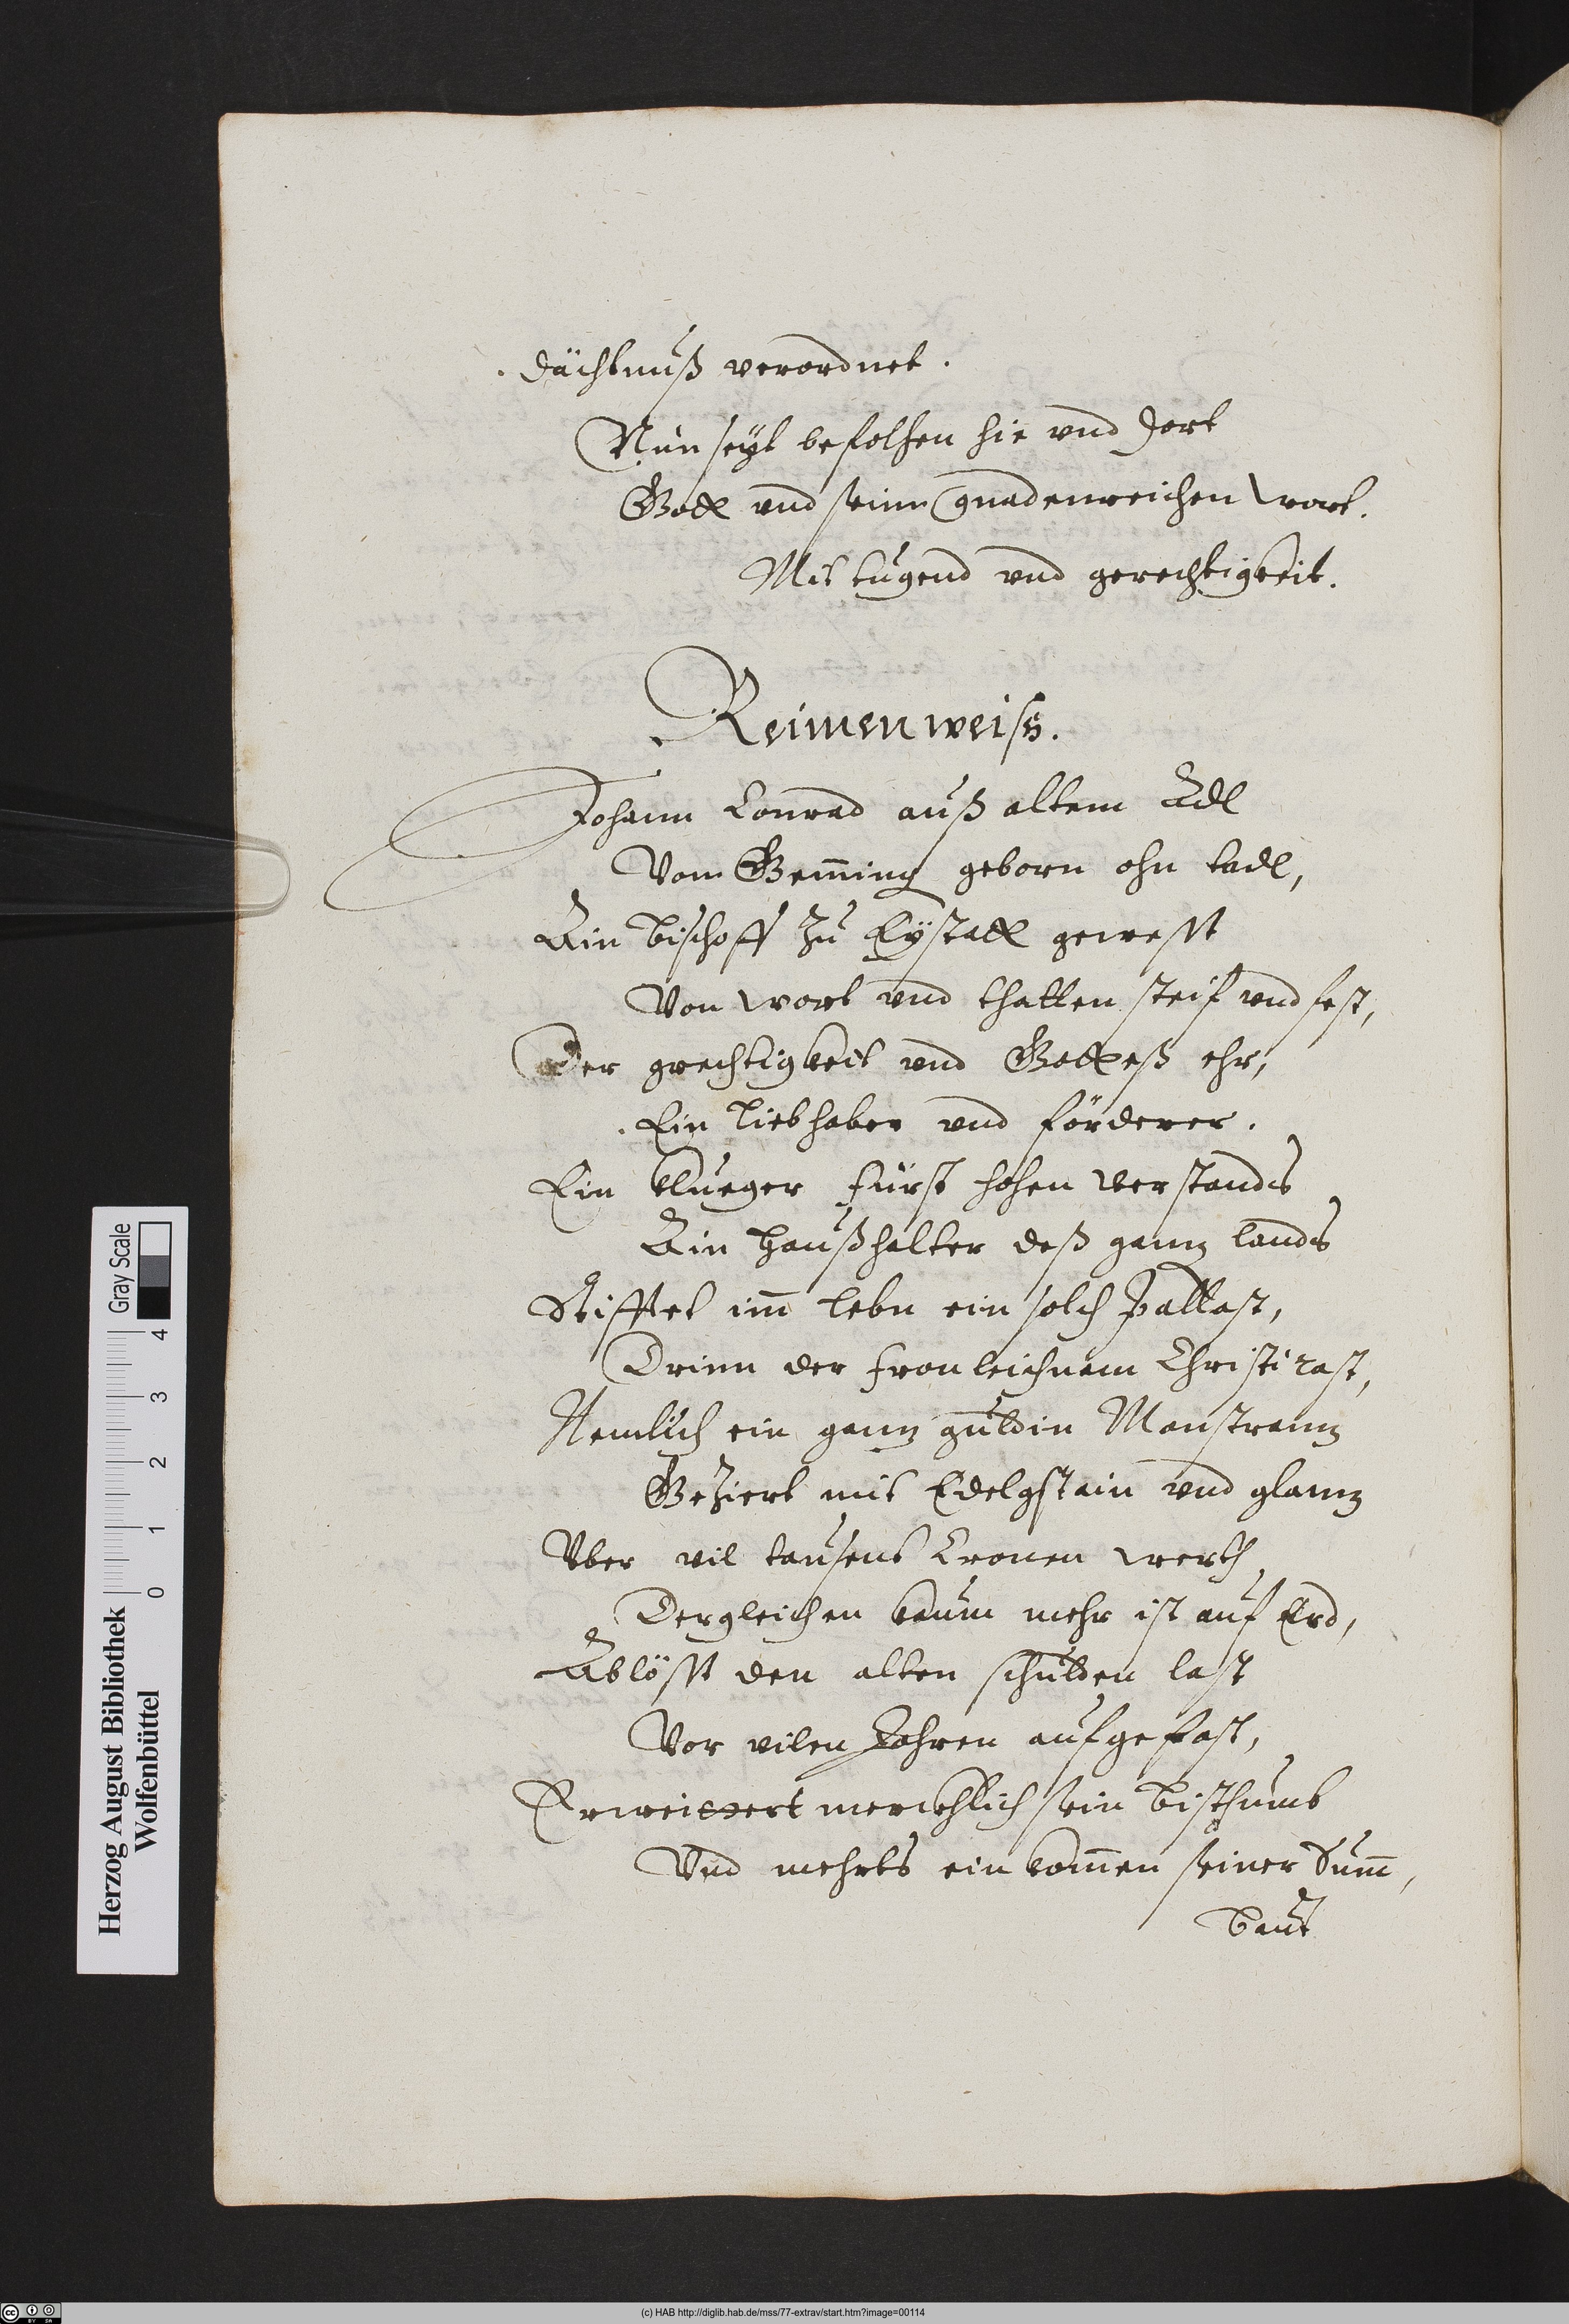 dächtnuß verordnet.
Nun seyt befolhen hie vnd dort
Gott vnd seim gnadenreichen wort.
Mit tugend vnd gerechtigkeit.
Reimenweiss.
Johann Conrad auß altem Adl
Vom Gem̄ing geborn ohn tadl,
Ain Bischoff zu Eystatt gewesst
Von wort vnd thatten steif vnd fest,
Der grechtigkeit vnd Gotteß ehr,
Ein Liebhaber vnd förderer.
Ein klueger fürst hohen verstands
Ain Haußhalter deß gantz lands
Stifftet im̄ lebn ein solch Pallast,
Drinn der fronleichnam Christi rast,
Nemlich ein gantz guldin Monstrantz
Geziert mit Edelgstain vnd glantz
Vber vil tausent Cronen werth,
Dergleichen kaum mehr ist auf Erd,
Ablösst den alten schulden last
Vor vilen Jahren aufgefast,
Erweittert merckhlich sein Bisthumb
Vnd mehrts einkom̄en seiner Sum̄,
Baut
Herzog August Bibliothek
Wolfenbüttel
0 1 2 3 4
Gray Scale
(c) HAB http://diglib.hab.de/mss/77-extrav/start.htm?image=00114